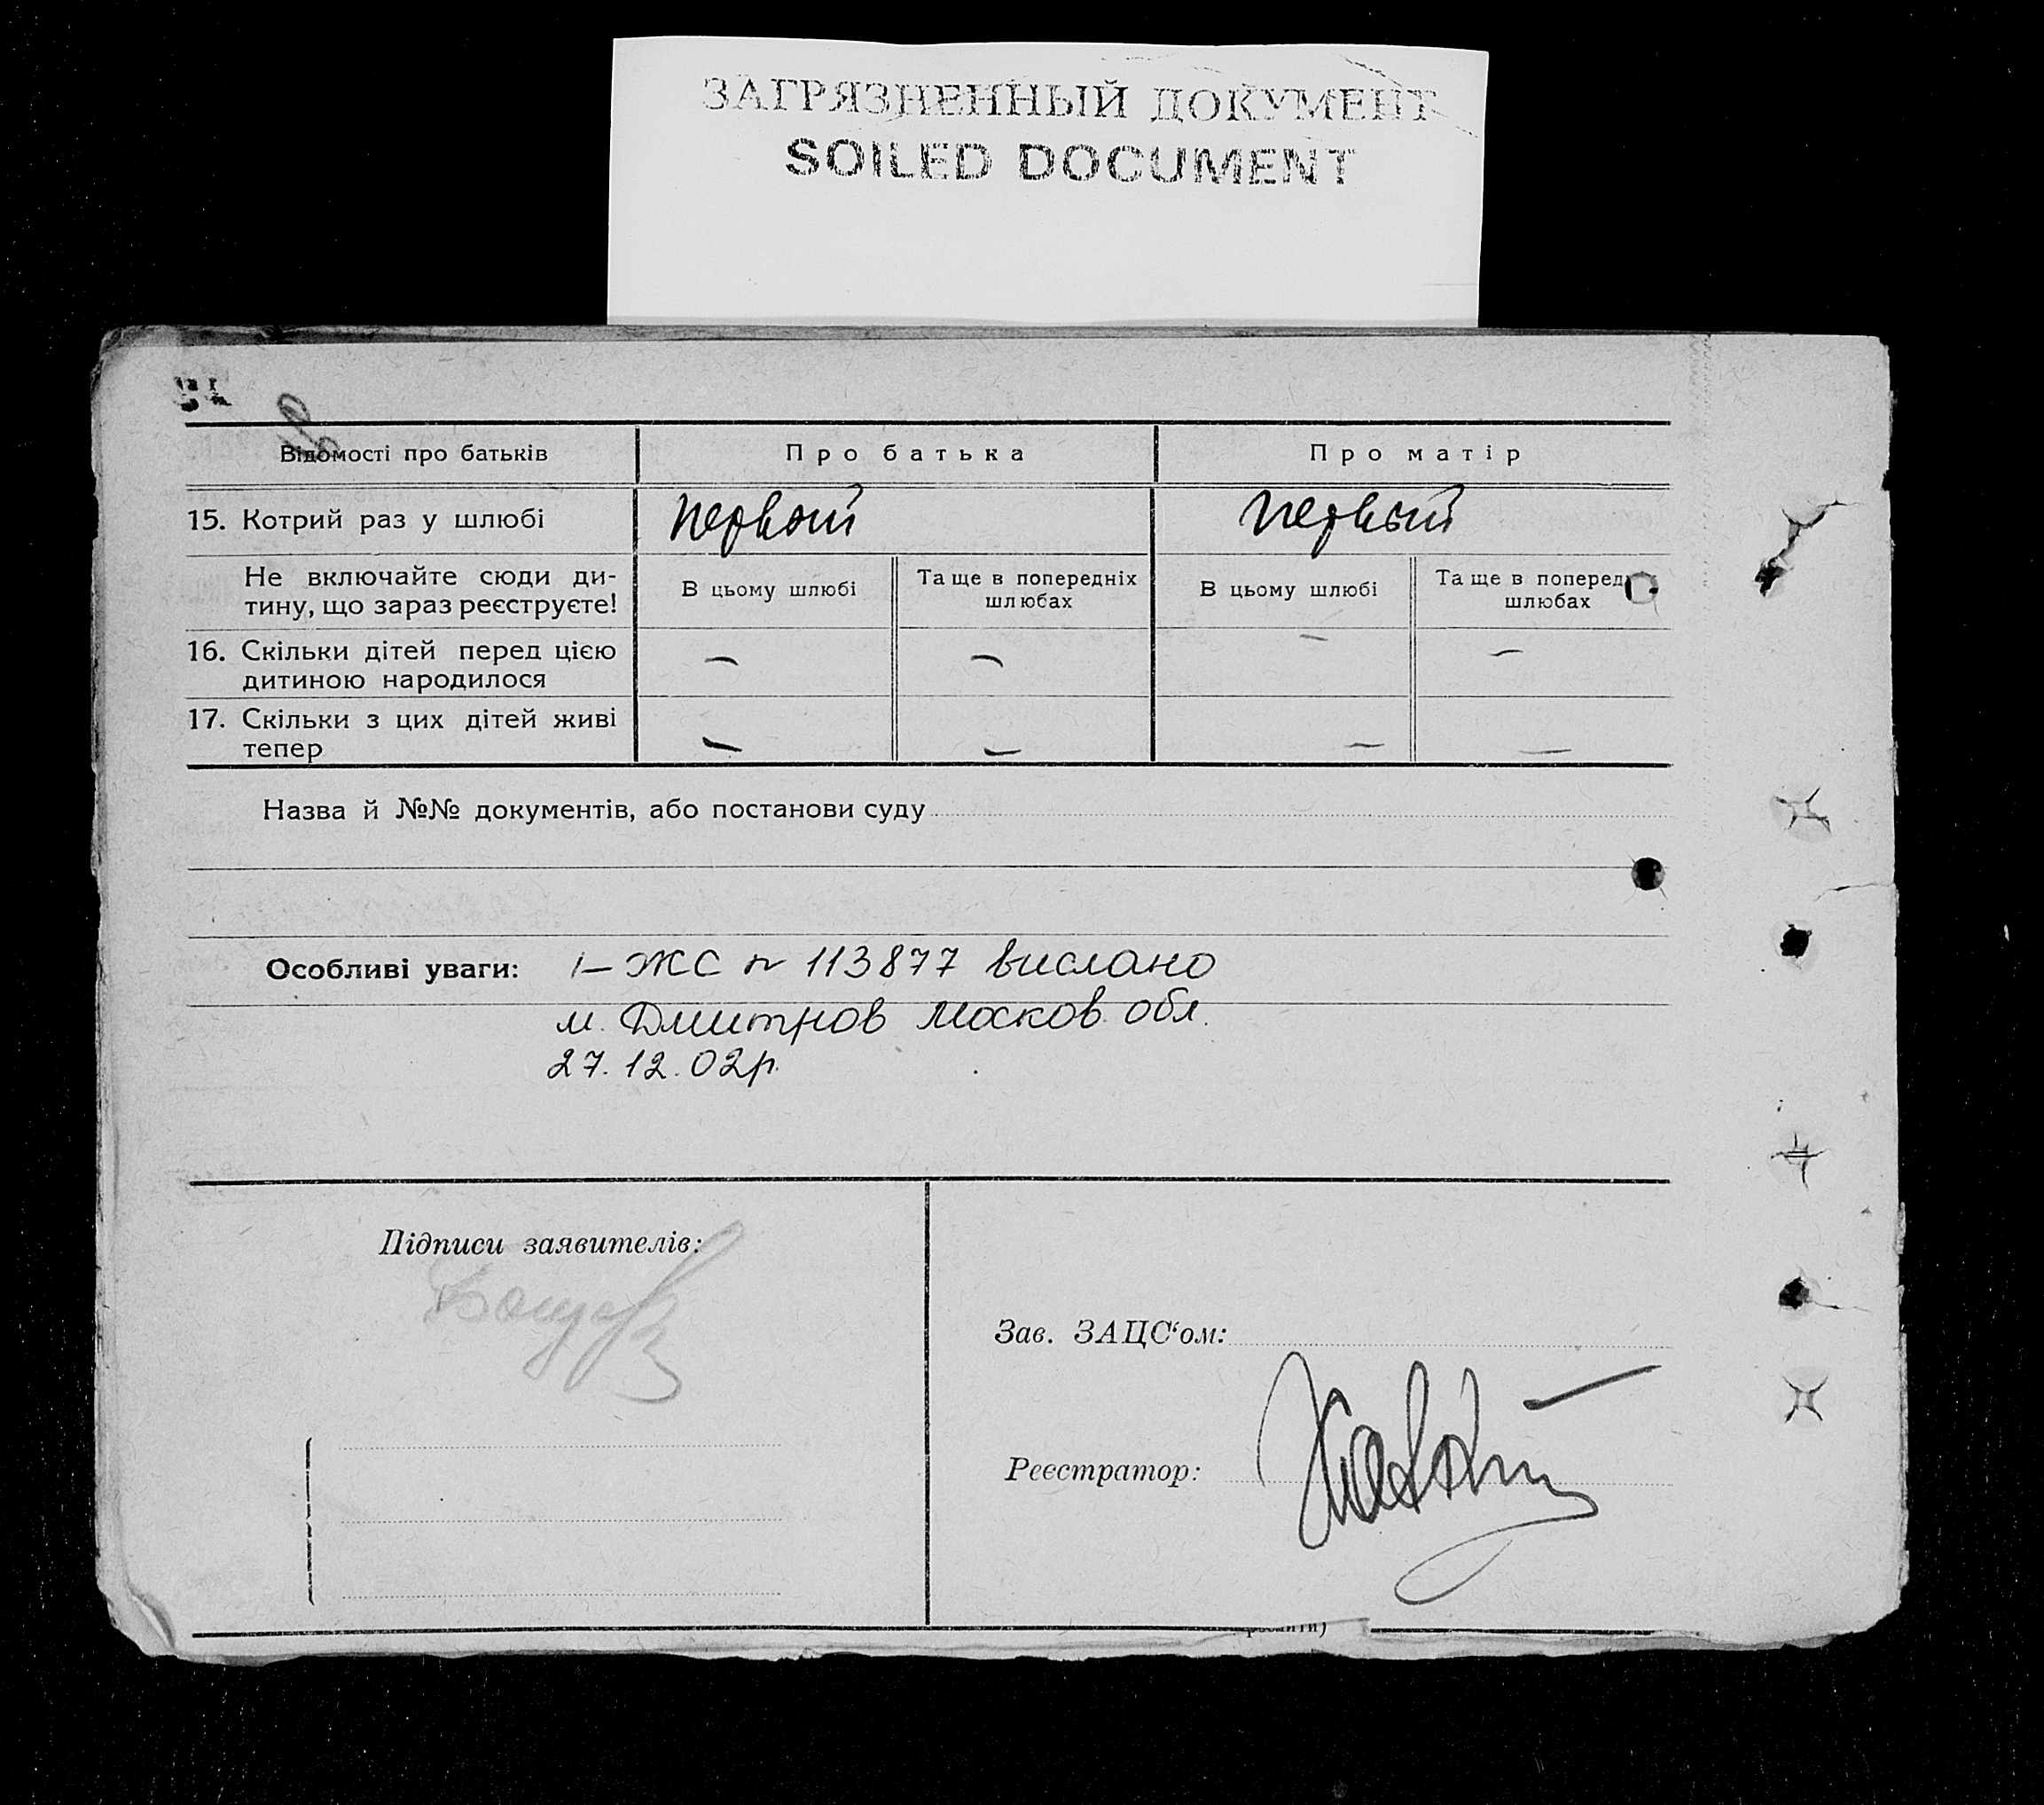 ЗАГРЯЗНЕННЫЙ ДОКУМЕНТ
SOILED DOCUMENT
Відомості про батьків Про батька Про матір
15. Котрий раз у шлюбі первый первый
Не включайте сюди ди-
тину, що зараз реєструєте!
В цьому шлюбі Та ще в попередніх шлюбах В цьому шлюбі Та ще в поперед шлюбах
16. Скільки дітей перед цією
дитиною народилося — — — —
17. Скільки з цих дітей живі
тепер — — — —
Назва й №№ документів, або постанови суду
Особливі уваги: І-ЖС № 113877 вислано
м. Дмитров Москов. обл.
27.12.02р.
Підписи заявителів:
Зав. ЗАЦС‘ом:
Реєстратор: